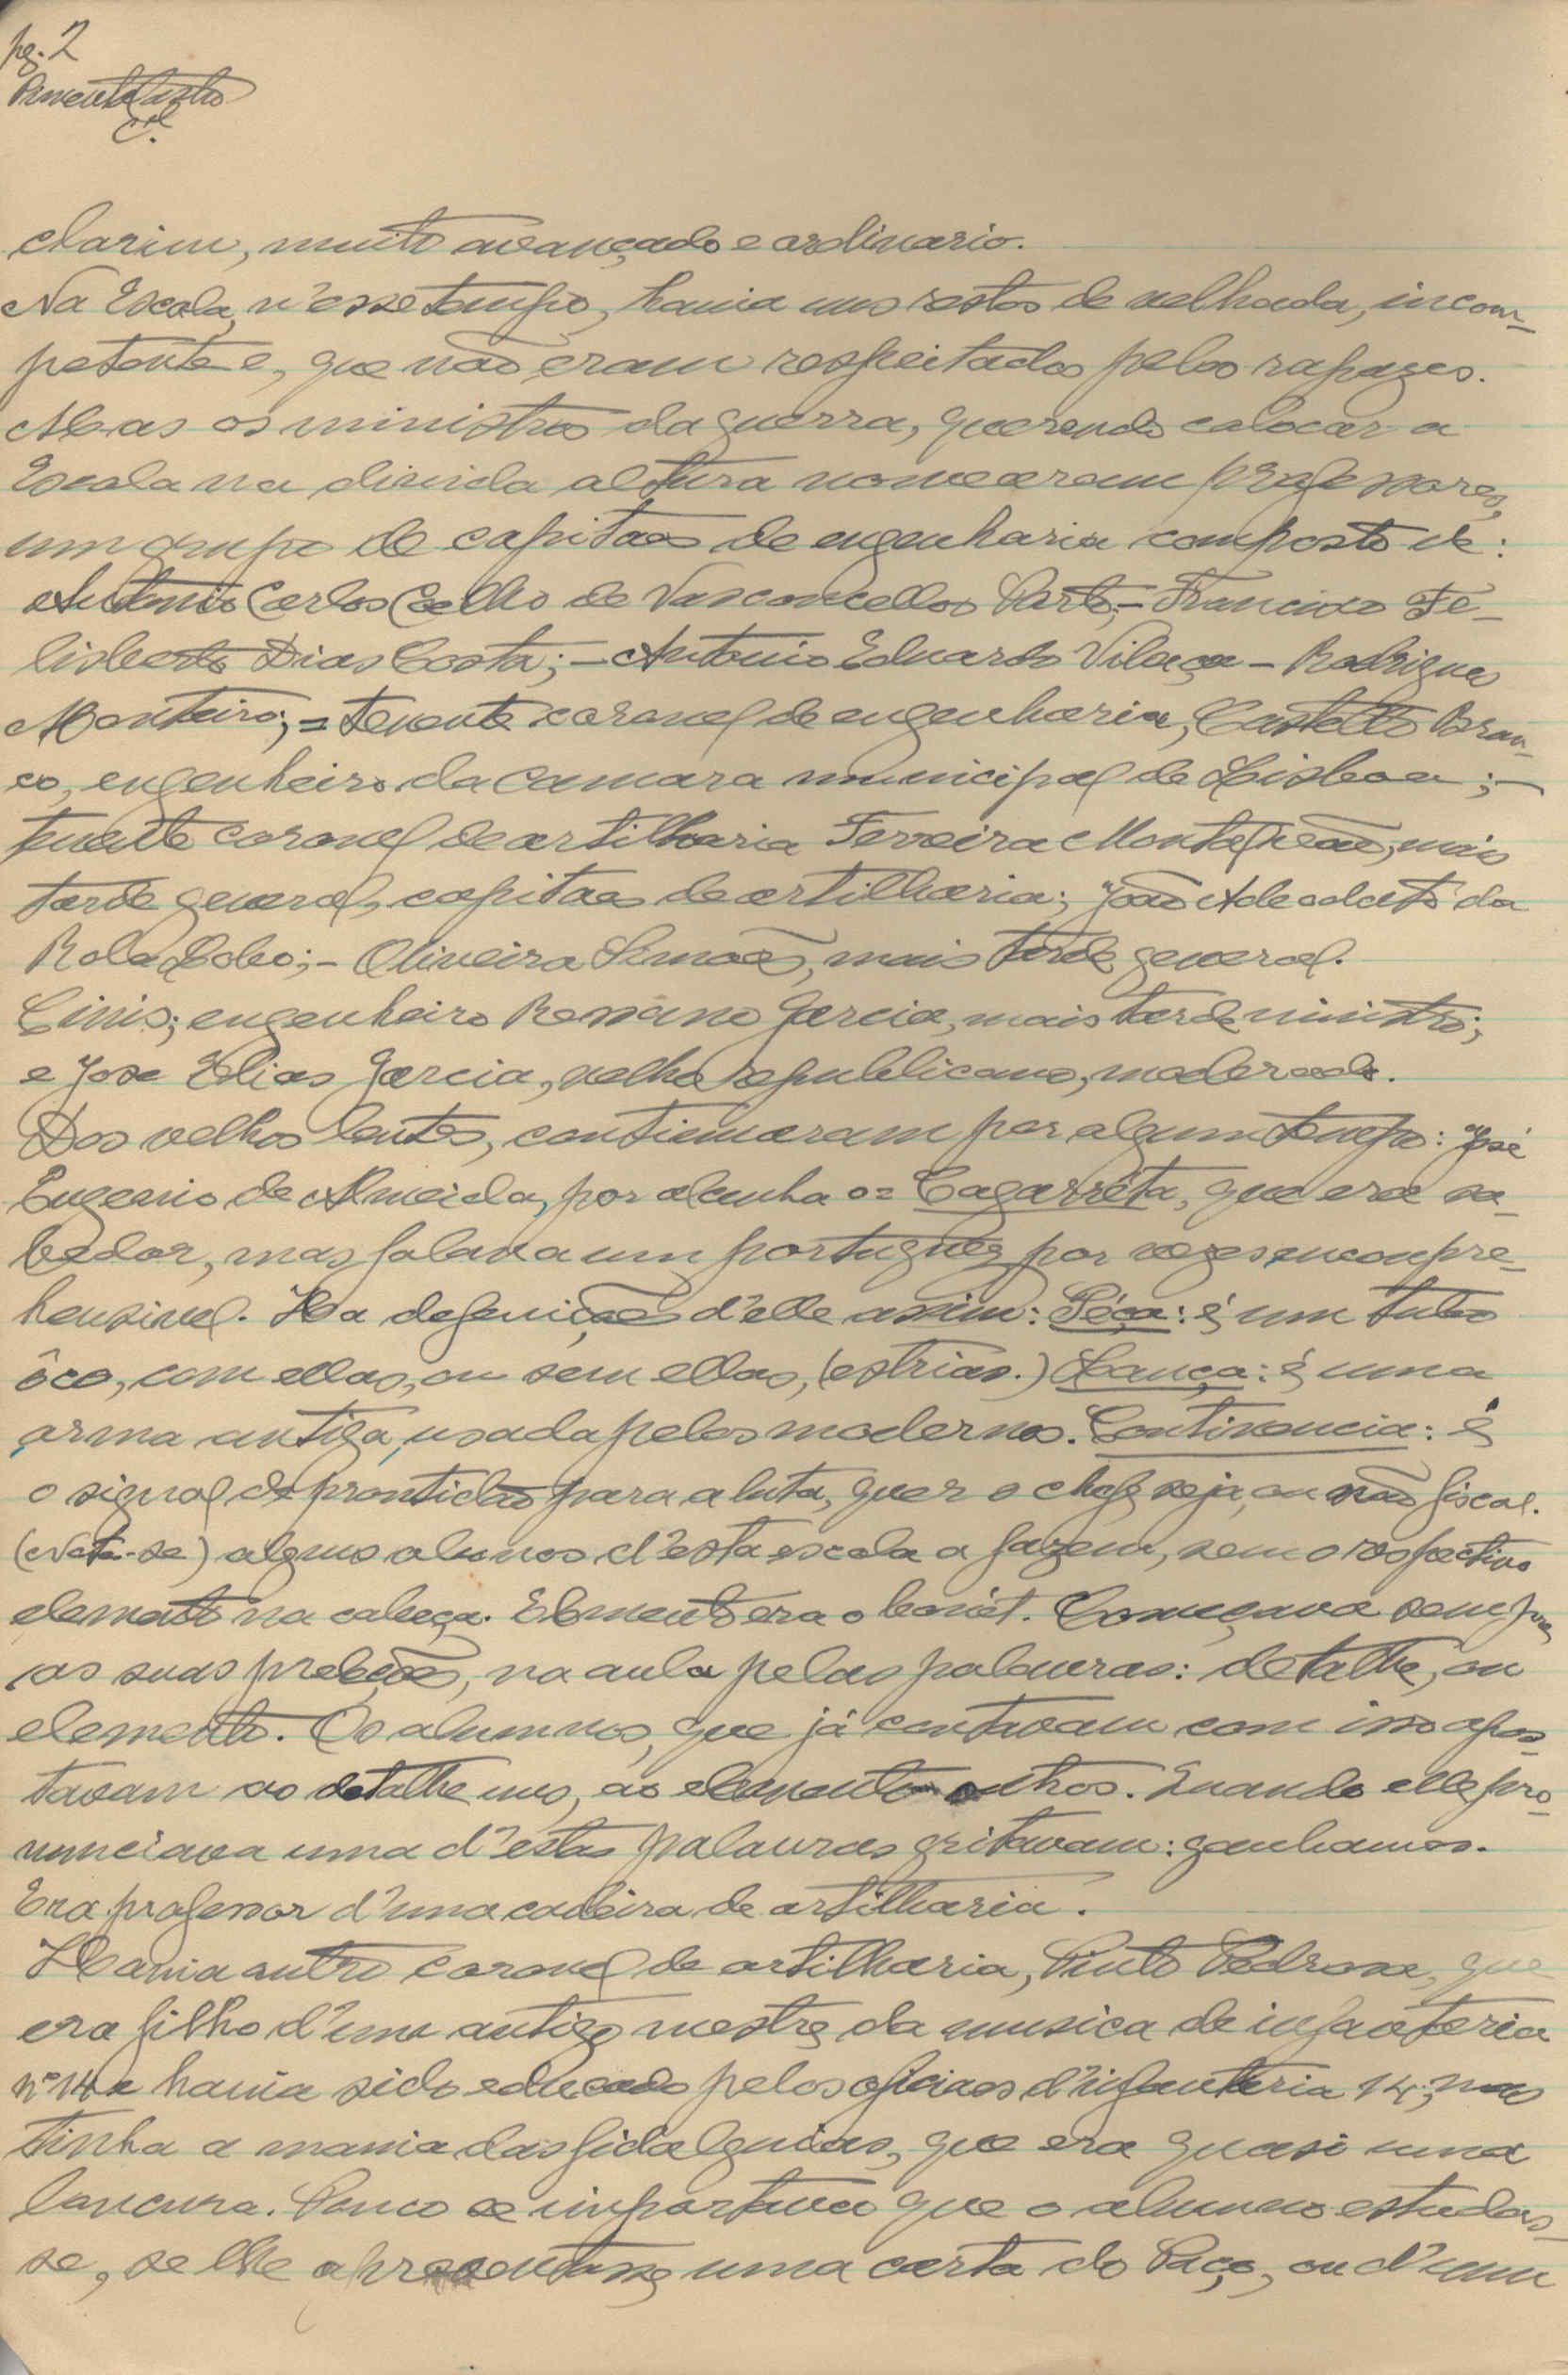 pg. 2
Pimenta Castro
Cel.
clarim, muito avançado e ordinario.
Na Escola, n'esse tempo, havia uns restos de velhada, incom-
petente e, que não eram respeitados pelos rapazes.
Mas os ministros da guerra, querendo colocar a
Escola na divida altura nomearam professores,
um grupo de capitães de engenharia composto de:
Antonio Carlos Coelho de Vasconcellos Porto;- Francisco Fe-
lisberto Dias Costa; - Antonio Eduardo Vilaça - Rodrigues
Monteiro; = tenente coronel de engenharia, Castello Bran-
co, engenheiro da camara municipal de Lisboa; -
tenente coronel de artilharia Ferreira Monte, mais
tarde general, capitão de artilharia; João da
Lobo; - Oliveira Simões, mais tarde general.
Cinis; engenheiro Ressano Garcia, mais tarde ministro;
e Jose Elias Garcia, velho republicano, moderado.
Dos velhos lentes, continuaram por algum tempo: José
Eugenio de Almeida, por alcunha o = Cagarrêta, que era sa-
bedor, mas falava um portuguez por vezes, encompre-
hensivel. Ha defenições d'elle assim: Péça: é um tubo
ôco, com ellas, ou sem ellas, (estrias.) Lança: é uma
arma antiga, usada pelos modernos. Continencia: é
o signal de prontidão para a luta, quer o chefe seja, ou não fiscal.
(Nota-se) alguns alunos d'esta escola a fazem, sem o respectivo
elemento na cabeça. Elemento era o bonét. Começava sempre
as suas preleções, na aula pelas palavras: detalhe, ou
elemento. Os alumnos, que já contavam com isso apos-
tavam ao detalhe uns, ao elemento outros. Quando elle pro-
nunciava uma d'estas palavras gritavam: ganhamos.
Era professor d'uma cadeira de artilharia.
Havia outro coronel de artilharia, Pinto Pedrosa, que
era filho d'um antigo mestre da musica de infanteria
nº 14 e havia sido educado pelos oficiaes d'infanteria 14; mas
tinha a mania das fidalguias, que era quasi uma
loucura. Pouco se importava que o alumno estudas-
se, se lhe apresentasse uma carta do Paço, ou d'um